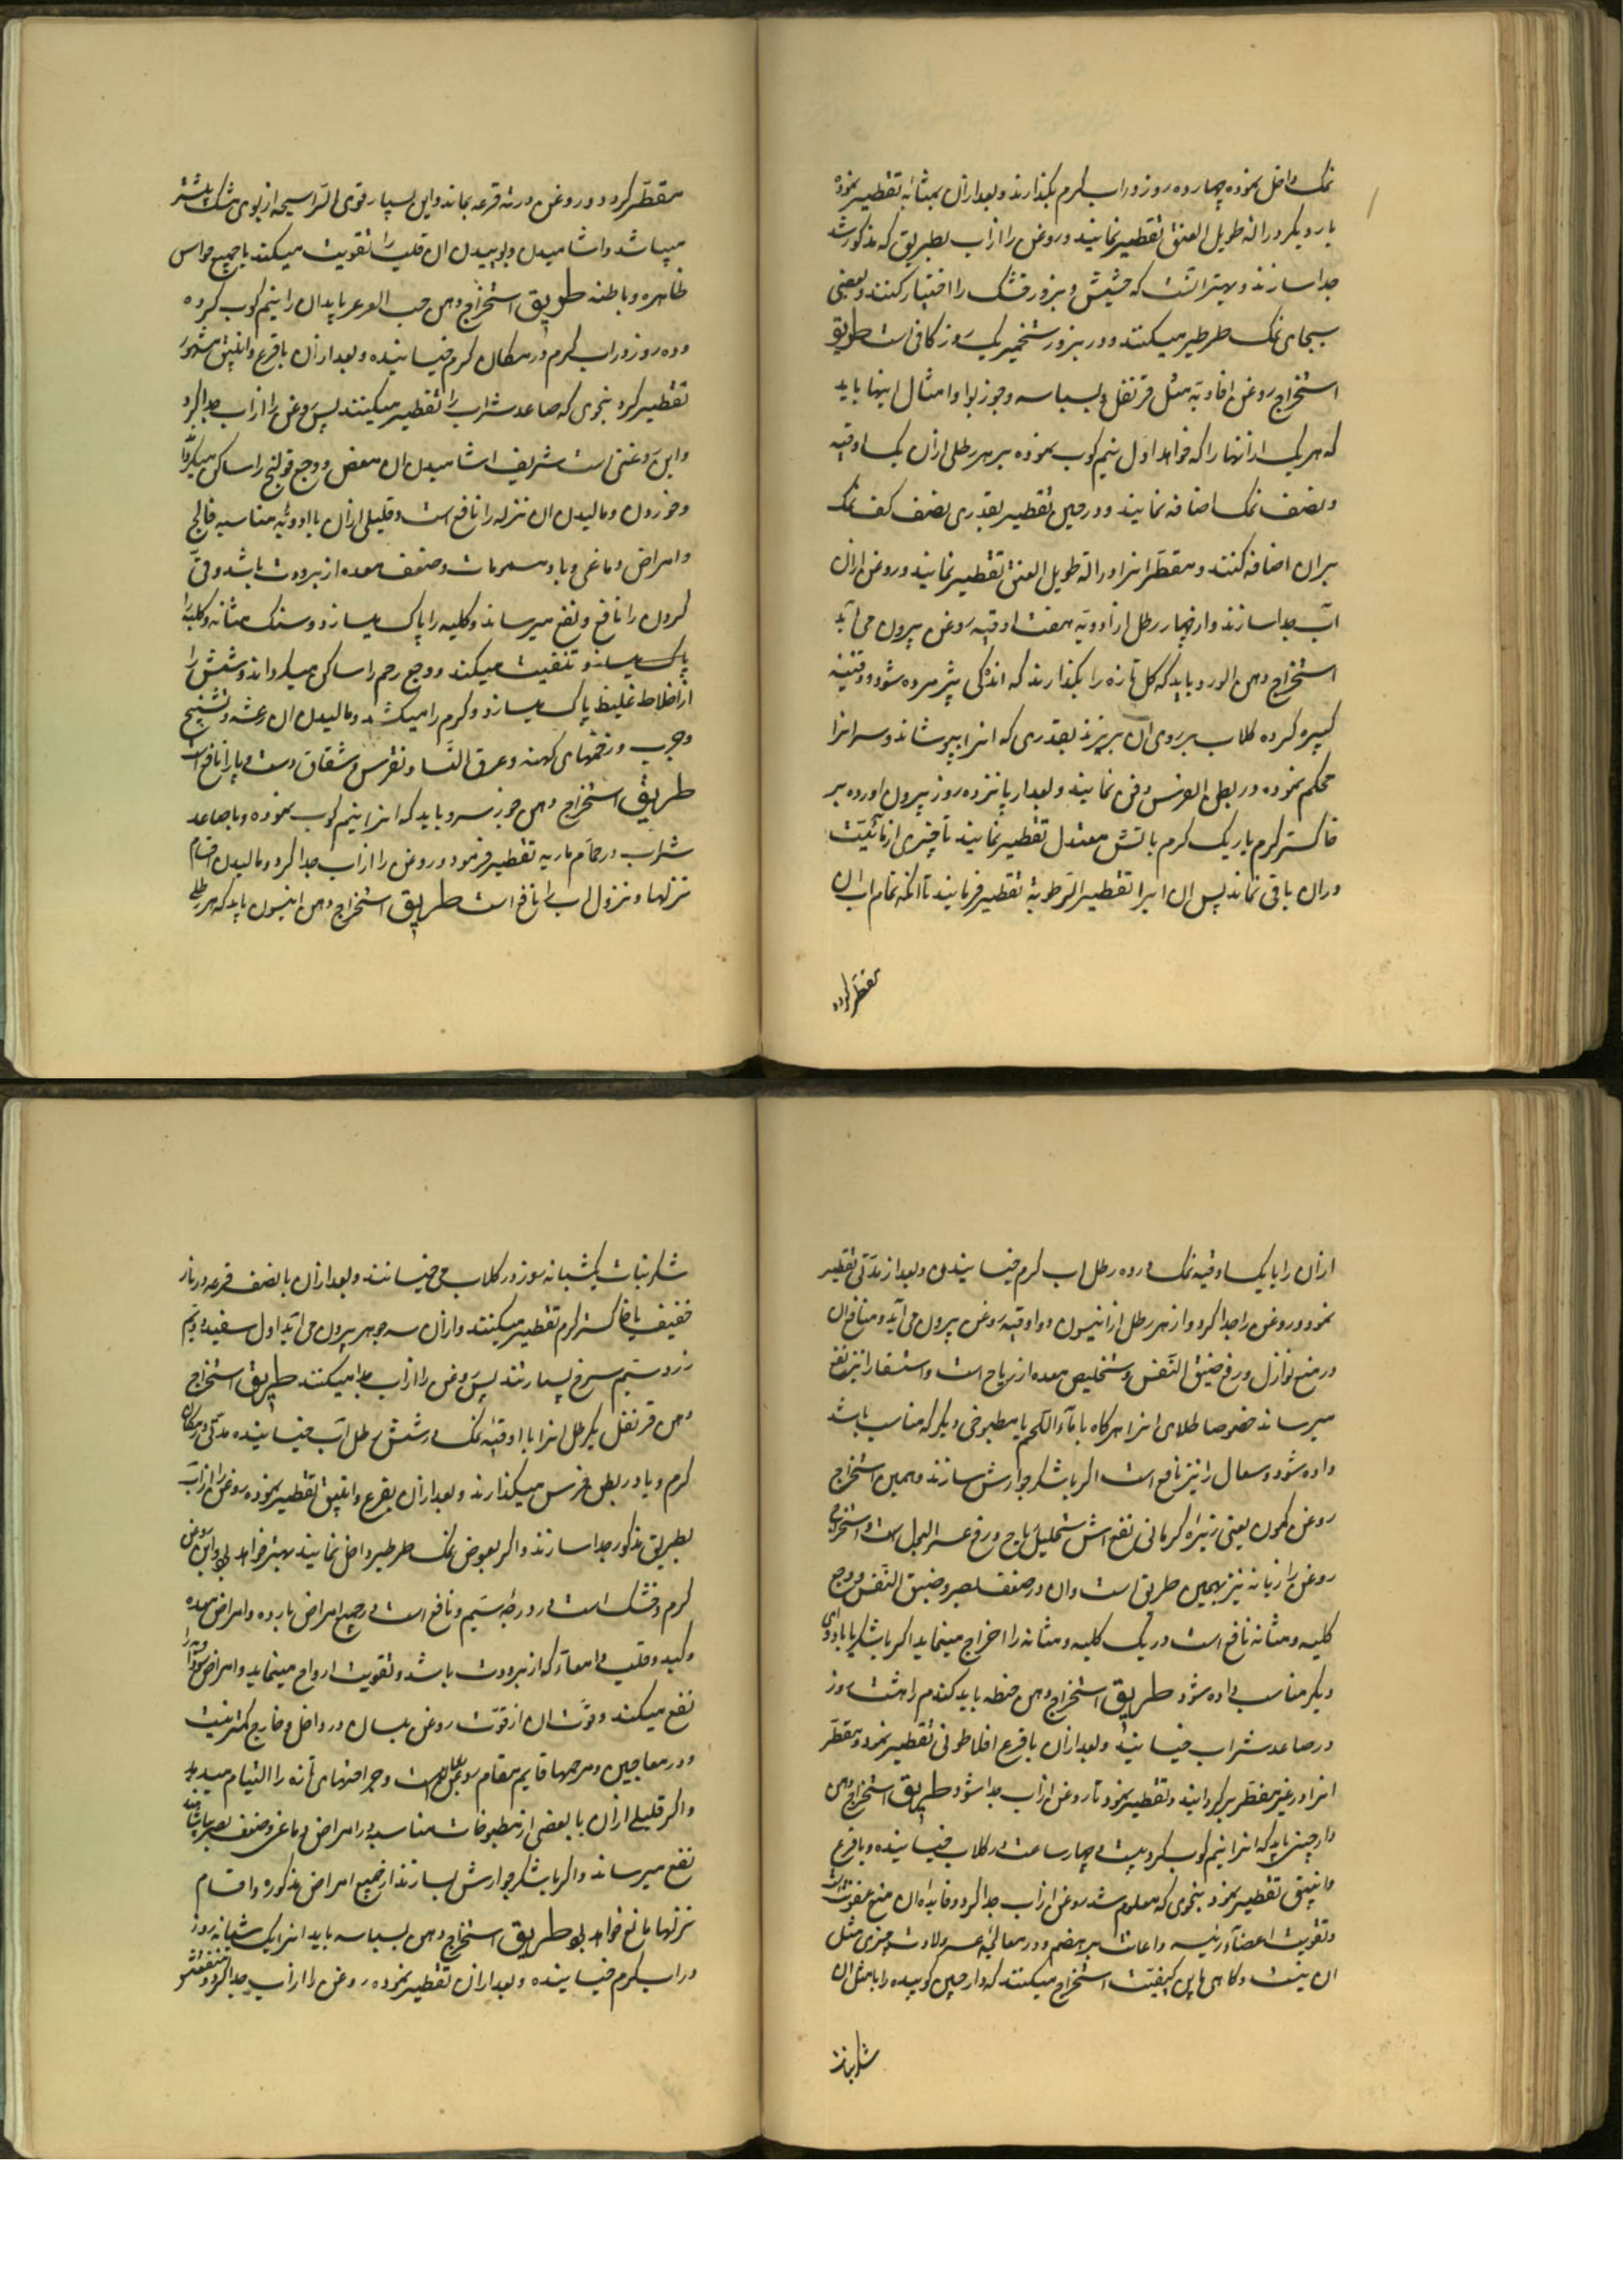 نمک داخل نموده چهارده روز در اب کرم بکذارند و بعد از ان بمثابه تقطیر نموده
بار دیکر در اله طویل العنق تقطیر نمایند و روغن را از اب بطریق که مذکور شد
جدا سازند و بهتر انست که حشیش و بزور خشک را اختیار کنند و بعضی
بجای نمک طرطیر میکنند و در بزور تخمیر یک روز کافی است طریق
استخراج روغن افاویه مثل قرنفل و بسباسه و جوز بوا و امثال اینها باید
که هر یک از انها را که خواهد اول نیم کوب نموده بر هر رطلی از ان یک اوقیه
و نصف نمک اضافه نمایند و در حین تقطیر بقدری نصف کف نمک
بر ان اضافه کنند و مقطر انرا در اله طویل العنق تقطیر نمایند و روغن از ان
اب جدا سازند و از چهار رطل از ادویه هفت اوقیه روغن بیرون می اید
استخراج دهن الورد باید که کل تازه را بکذارند که اندکی پژمرده شود و قنینه
کبیره کرده کلاب بر روی ان بریزند بقدری که انرا بپوشاند و سر انرا
محکم نموده در بطن الفرس دفن نمایند و بعد از پانزده روز بیرون اورده بر
خاکستر کرم یا ریک کرم باتش معتدل تقطیر نمایند تا چیزی از مائیت
در ان باقی نماند پس ان ابرا تقطیر الرطوبة تقطیر فرمایند تا انکه تمام اب ان
مقطر کردد
مقطر کردد و روغن در ته قرعه بماند و این بسیار قوی الرایحه از بوی مشک بیشتر
میباشد و اشامیدن و بوییدن ان قلب را تقویت میکند با جمیع حواس
ظاهره و باطنه طریق استخراج دهن حب العرعر باید ان را نیم کوب کرده
و ده روز در اب کرم در مکان کرم خیسانیده و بعد از ان با قرع و انبیق مشهور
تقطیر کرد بنحوی که صاعد شراب را تقطیر میکنند پس روغن را از اب جدا کرد
و این روغنی است شریف اشامیدن ان مغص و وجع قولنج را ساکن میکرداند
و خوردن و مالیدن ان نزله را نافع است و قلیلی از ان با ادویه مناسبه فالج
و امراض دماغی و باد سموات و ضعف معده از برودت باشد و قی
کردن را نافع و نفع میرساند و کلیه را پاک میسازد و سنک مثانه و کلیه را
پاک میسازد و تنقیت میکند و وجع رحم را ساکن میکرداند و شش را
از اخلاط غلیظ پاک میسازد و کرم را میکشد و مالیدن ان رعشه و تشنج
و جرب و زخمهای کهنه و عرق النسا و نقرس و شقاق دست و پا را نافع است
طریق استخراج دهن جوز سرو باید که انرا نیم کوب نموده و با صاعد
شراب در حمام ماریه تقطیر فرمود و روغن را از اب جدا کرد و مالیدن اقسام
نزلها و نزول اب را نافع است طریق استخراج دهن انیسون باید که هر رطلی
از ان را با یک اوقیه نمک در ده رطل اب کرم خیسانیدن و بعد از مدتی تقطیر
نمود و روغن را جدا کرد و از هر رطل از انیسون دو اوقیه روغن بیرون می اید و منافع ان
در منع نوازل و رفع ضیق النفس و تخلیص معده از ریاح است و استسقا را نیز نفع
میرساند خصوصا طلای انرا هرکاه با ماء اللحم یا مطبوخی دیکر که مناسب باشد
داده شود و سعال را نیز نافع است اکر با شکر جوارش سازند و همین استخراج
روغن کمون یعنی زیره کرمانی نفعش تحلیل ریاح و رفع عسر البول است و استخراج
روغن رازیانه نیز بهمین طریق است و ان در ضعف بصر و ضیق النفس و وجع
کلیه و مثانه نافع است و ریک کلیه و مثانه را اخراج مینماید اکر با شکر یا با دوای
دیکر مناسب داده شود طریق استخراج دهن حنطه باید کندم را هشت روز
در صاعد شراب خیسانید و بعد از ان با قرع افلاطونی تقطیر نمود و مقطر
انرا در غیر مقطر بر کردانید و تقطیر نمود تا روغن از اب جدا شود طریق استخراج دهن
دارچینی باید که انرا نیم کوب کرد بیست و چهار ساعت در کلاب خیسانیده و با قرع
و انبیق تقطیر نمود بنحوی که معلوم شد روغن از اب جدا کرد و فایده ان منع عفونت
و تقویت اعضاء رئیسه و اعانت بر هضم و در معالجه عسر ولادت چیزی مثل
ان نیست و کاهی باین کیفیت استخراج میکنند که دارچین کوبیده را با مثل ان
شکر نبات
شکر نبات یکشبانه روز در کلاب می خیسانند و بعد از ان با نصف قرعه در نار
خفیف با خاکستر کرم تقطیر میکنند و از ان سه جوهر بیرون می اید اول سفید دویم
زرد سیم سرخ بسیار تند پس روغن را از اب جدا میکنند طریق استخراج
دهن قرنفل یک رطل انرا با اوقیه نمک در شش رطل اب خیسانیده مدتی در مکان
کرم و یا در بطن فرس میکذارند و بعد از ان بقرع و انبیق تقطیر نموده روغن را از اب
بطریق مذکور جدا سازند و اکر بعوض نمک طرطیر داخل نمایند بهتر خواهد بود و این روغن
کرم و خشک است در درجه سیم و نافع است در جمیع امراض بارده و امراض معده
و کبد و قلب و امعاء که از برودت باشد و تقویت ارواح مینماید و امراض سوداویه را
نفع میکند و قوت ان از قوت روغن بلسان در داخل و خارج کمتر نیست
و در معاجین و مرهمها قایم مقام روغن بلسان است و جراحتهای تازه را التیام میدهد
و اکر قلیلی از ان با بعضی از مطبوخات مناسب در امراض دماغی و ضعف بصر بیاشامند
نفع میرساند و اکر با شکر جوارش بسازند از جمیع امراض مذکوره و اقسام
نزلها مانع خواهد بود طریق استخراج دهن بسباسه باید انرا یک شبانه روز
در اب کرم خیسانیده و بعد از ان تقطیر نموده روغن را از اب جدا کرد و منفعتش